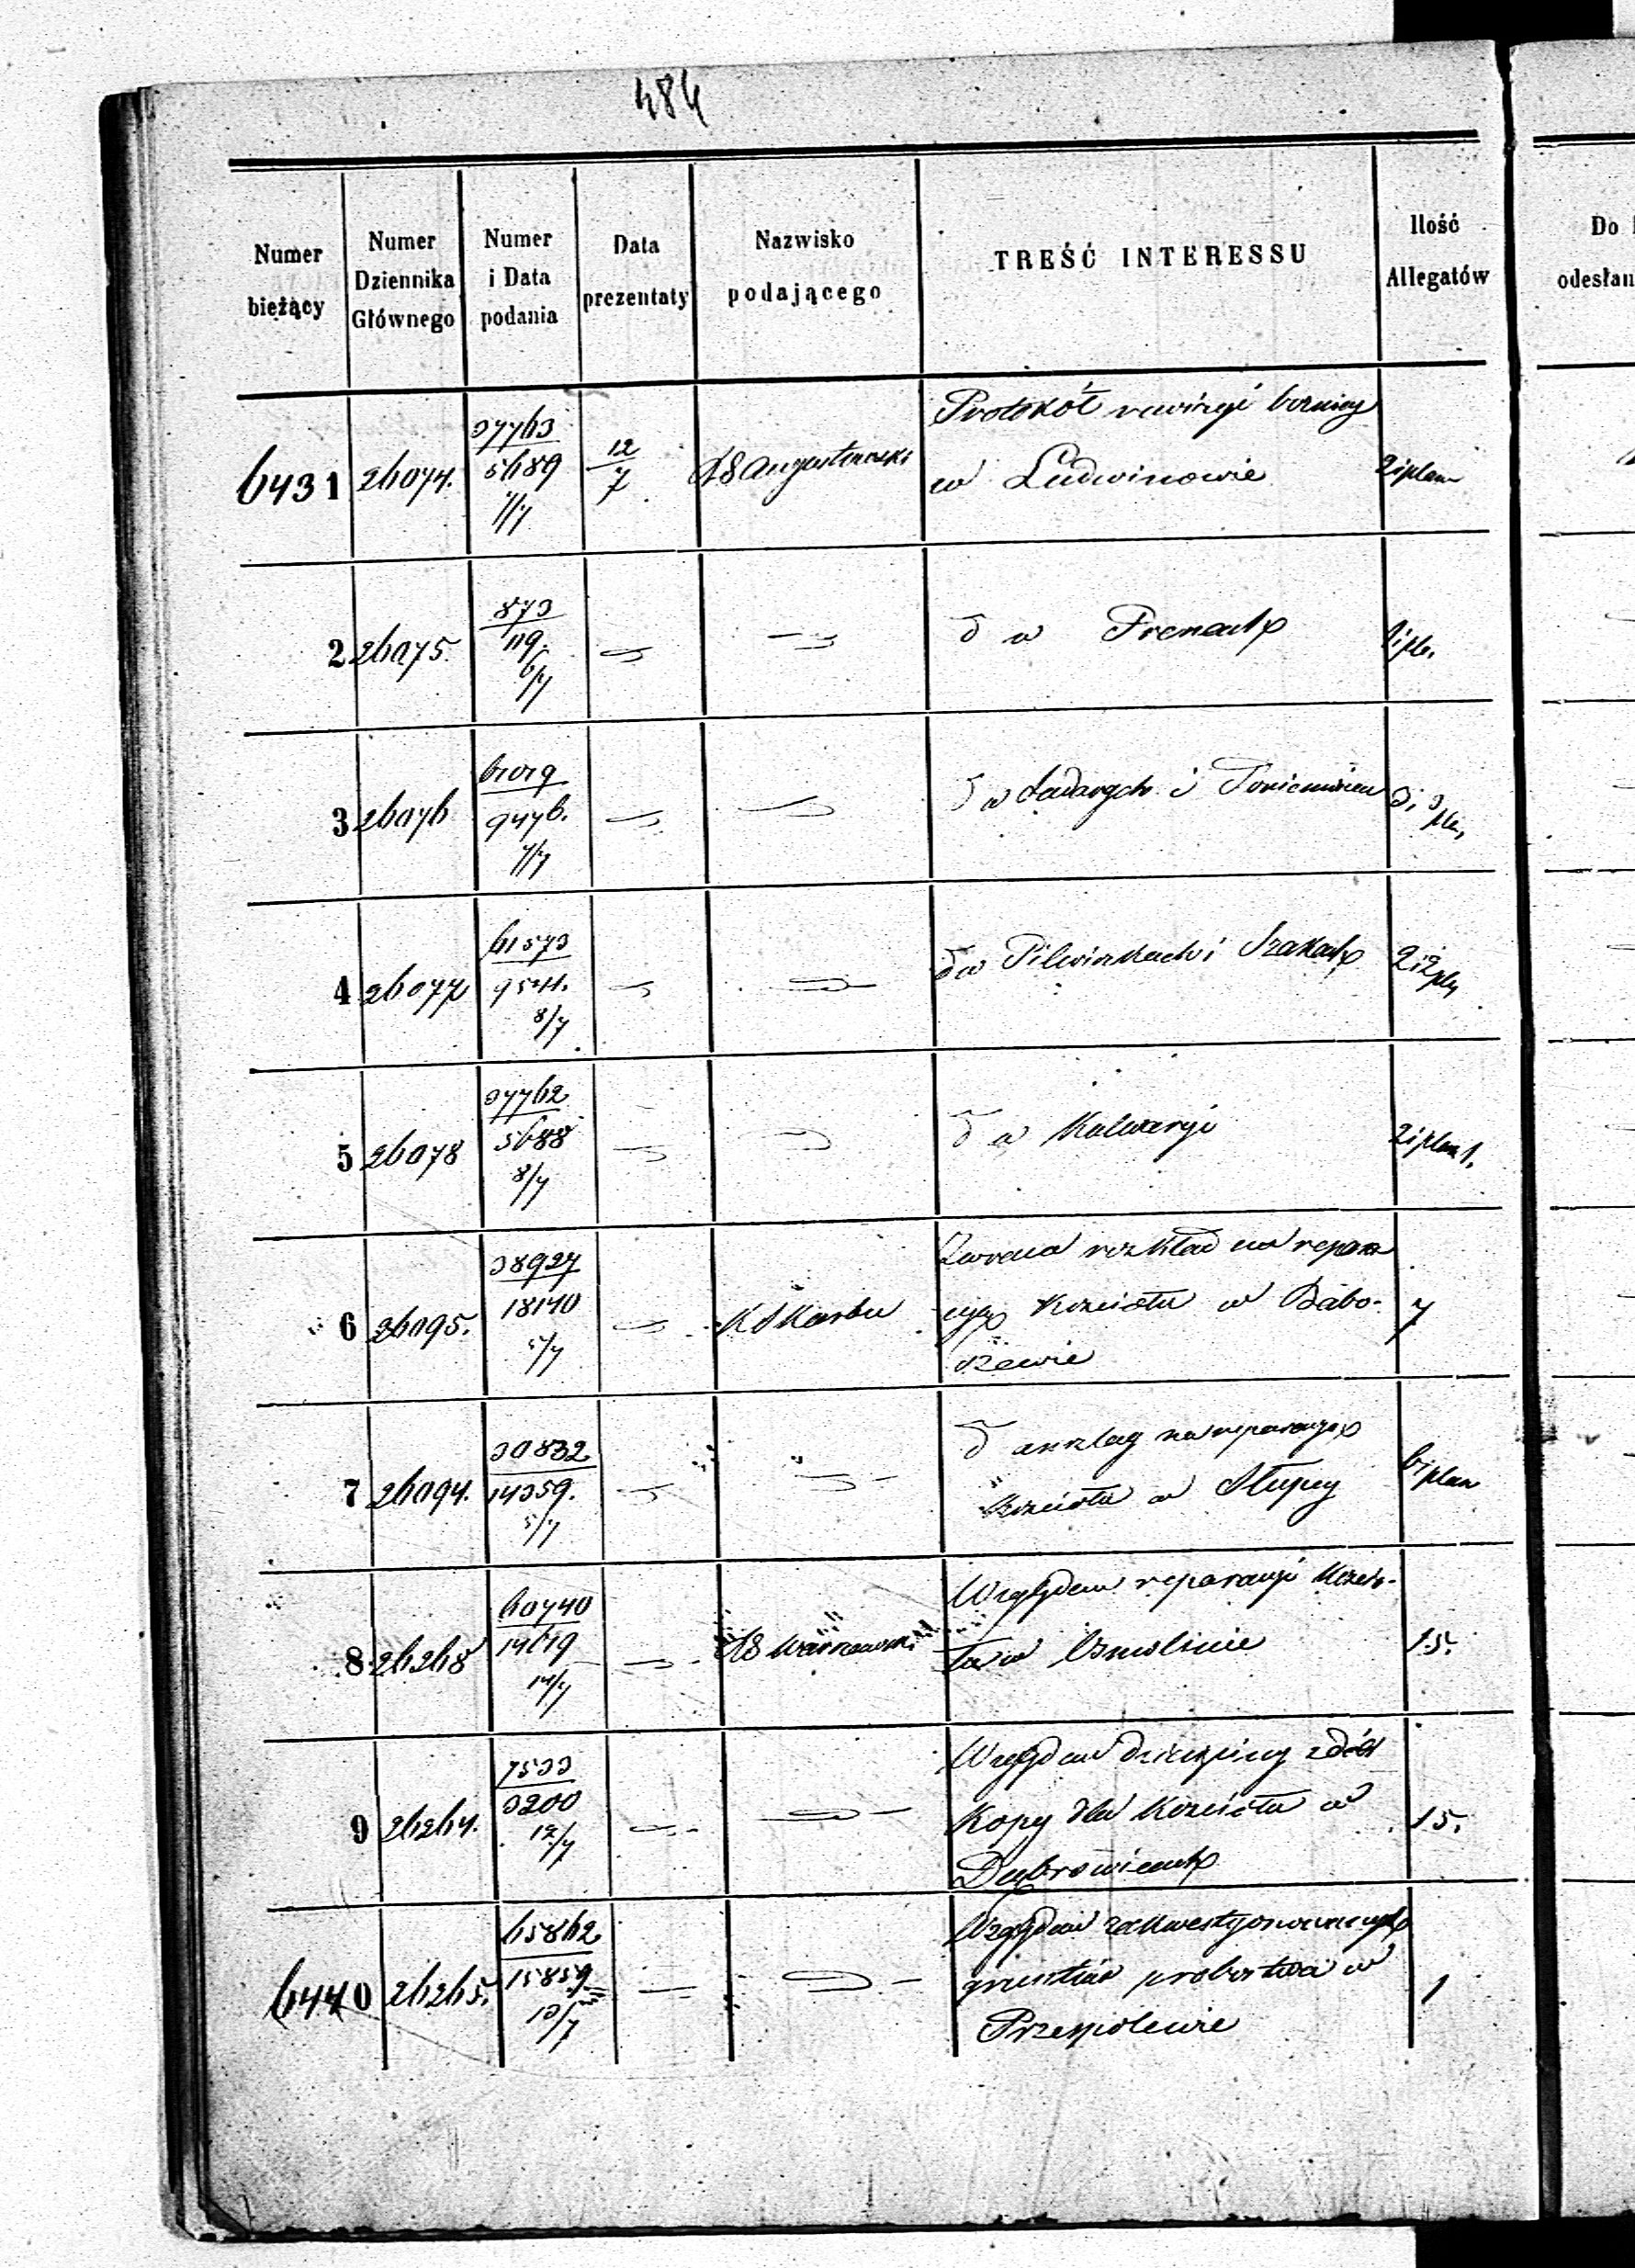 484
Numer bieżący
Numer Dziennika Głównego
Numer i Data podania
Data prezentaty
Nazwisko podającego
TREŚĆ INTERESSU
Ilość Allegatów
Do
odesłan
6431 26074. 37763 5689 7/7 12/7 Augustowski Protokół rewizyi bożnicy
w Ludwinowie 2 i plan
2 26075. 873 119. 6/7 w Prenach
3 26076 61019 9476. 7/7 i
4 26077 61573 9541. 8/7 w Pilwiszkach i Szakach 2 i 2
5 26078 37762 5688 8/7 w Kalwaryi 2 i plan
6 26095. 38927 18140 5/7 K Skarbu rozkład na repara
cyę Kościoła w Babo-
szewie 7
7 26094. 30832 14359. 5/7 anszlag na reparacyę
Kościoła w Słupcy 6 i plan
8 26268 60740 14619 14/7 Warszawski Względem reparacyi Kościo-
ła w Osmolinie 15.
9 26264. 7533 3200 12/7 Względem dziesięciny
Kopy dla Kościoła w
Dąbrowicach 15.
6440 26265. 65862 15859 13/7 Względem zakwestyonowanych
gruntów probostwa w
Przespolewie 1